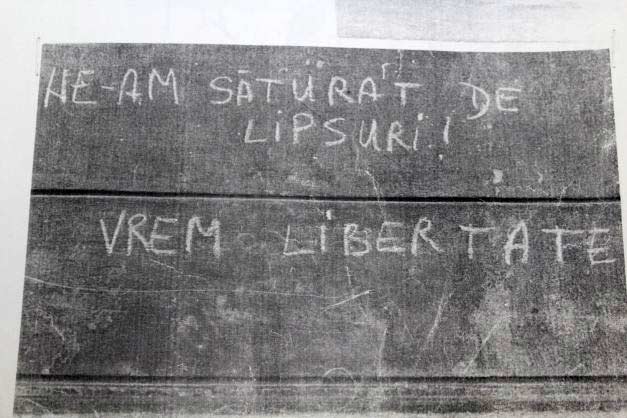 NE-AM SĂTURAT DE
LiPSURi!
VREM LiBERTATE